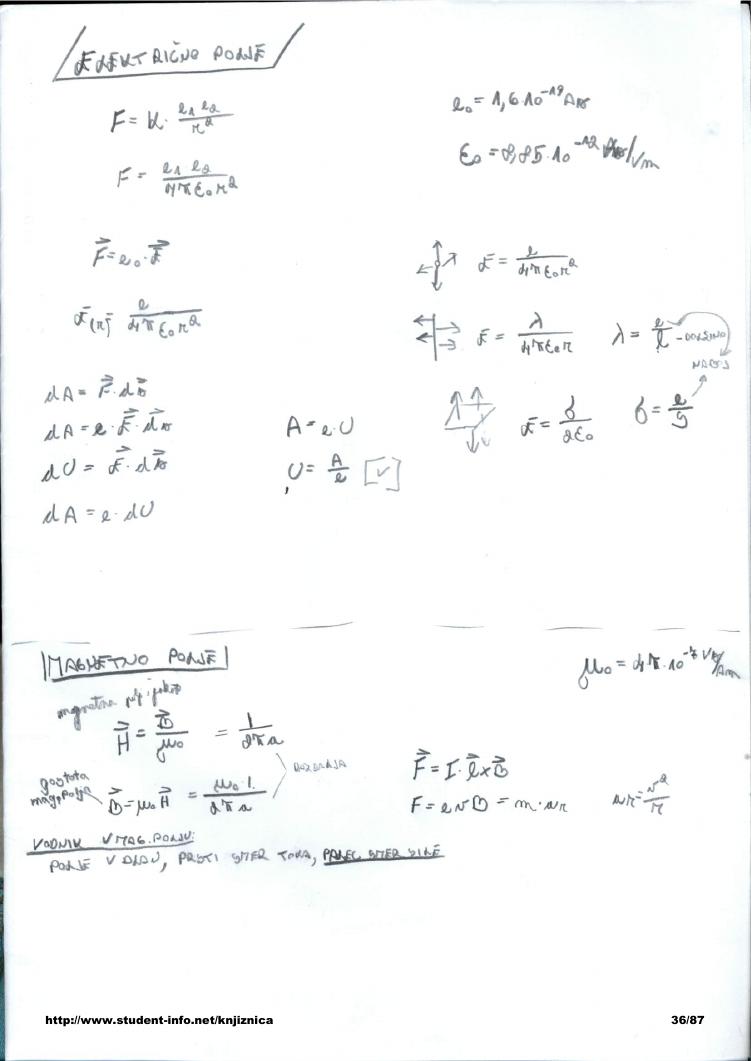 ELEKTRIČNO POLJE
F = K · e₁ e₂ / r²
e₀ = 1,6·10⁻¹⁹ As
F = e₁ e₂ / 4πε₀r²
ε₀ = 8,85·10⁻¹² As/Vm
F⃗ = e₀·E⃗
E = e / 4πε₀r²
E(r) = e / 4πε₀r²
E = λ / 4πε₀r
λ = e / l - DOLŽINA
NABOJ
dA = F⃗·ds⃗
dA = e·E⃗·ds⃗
A = e·U
E = σ / 2ε₀
σ = e / S
dU = E⃗·ds⃗
U = A / e [✓]
dA = e·dU
MAGNETNO POLJE
μ₀ = 4π·10⁻⁷ Vs/Am
magnetna
H⃗ = B⃗ / μ₀ = I / 2πa
gostota
mag. polja
B⃗ = μ₀H⃗ = μ₀·I / 2πa
F⃗ = I·l⃗×B⃗
F = evB = m·ar
ar = v² / r
VODNIK V MAG. POLJU:
POLJE V DLAN, PRSTI SMER TOKA, PALEC SMER SILE
http://www.student-info.net/knjiznica
36/87